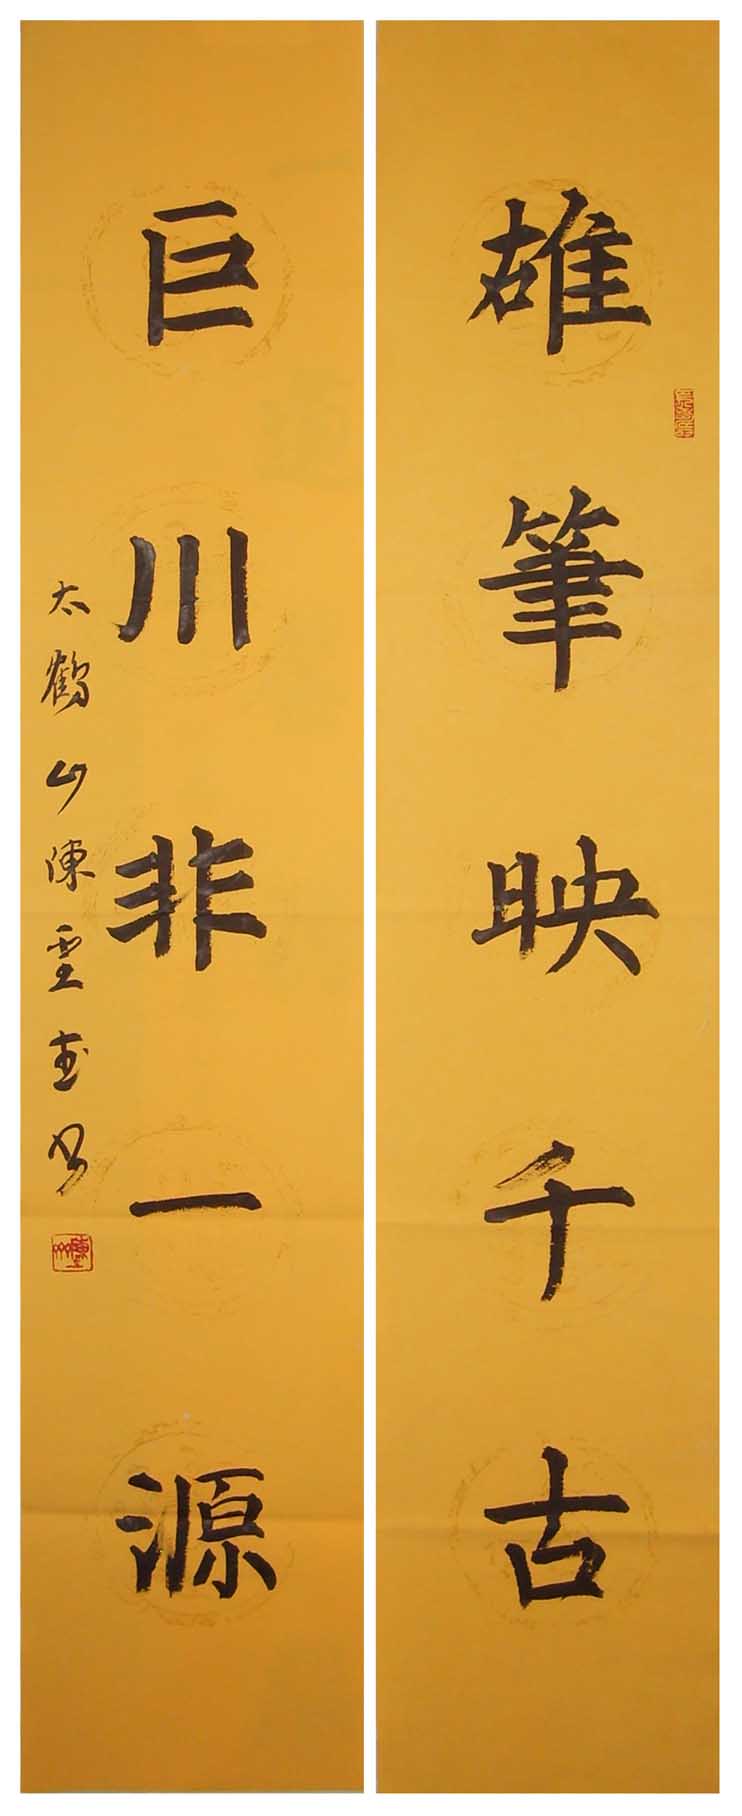 雄筆映千古
巨川非一源
太鶴山陳雲